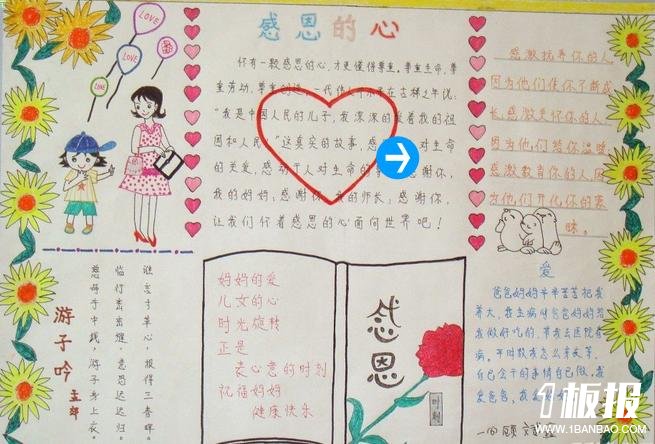 感恩的心
LOVE
LOVE
LOVE
怀有一颗感恩的心,才更懂得尊重。尊重生命、尊
重劳动、尊重创造。一代伟人邓小平在古稀之年说:
"我是中国人民的儿子,我深深的爱着我的祖
国和人民。"这真实的故事,感
对生命
的关爱,感动于人对生命的
感谢你,
我的好妈;感谢你,我的师长;感谢你,
让我们怀着感恩的心面向世界吧!
感激抚养你的人
因为他们使你不断成
长,感激关怀你的人,
因为他们给你温暖,
感激教育你的人,因
为他们开化你的蒙
昧。
游子吟
孟郊
慈母手中线,游子身上衣。
临行密密缝,意恐迟迟归。
谁言寸草心,报得三春晖。
妈妈的爱
儿女的心
时光旋转
正是
表心意的时刻
祝福妈妈
健康快乐
感恩
爱
爸爸妈妈辛辛苦苦把我
养大,我生病时爸爸妈妈给
我做好吃的,带我去医院看
病。
自己会干的事情自己做。我
爱爸爸,
1板报
WWW.1BANBAO.COM